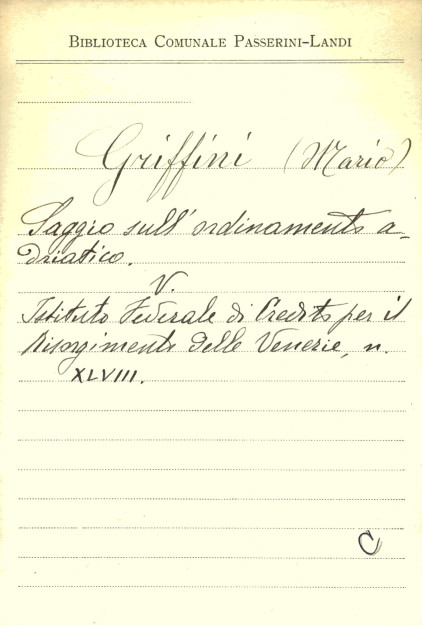 BIBLIOTECA COMUNALE PASSERINI-LANDI
Griffini (Mario)
Saggio sull'ordinamento a-
driatico.
V.
Istituto Federale di Credito per il
Risorgimento delle Venezie, n.
XLVIII.
C